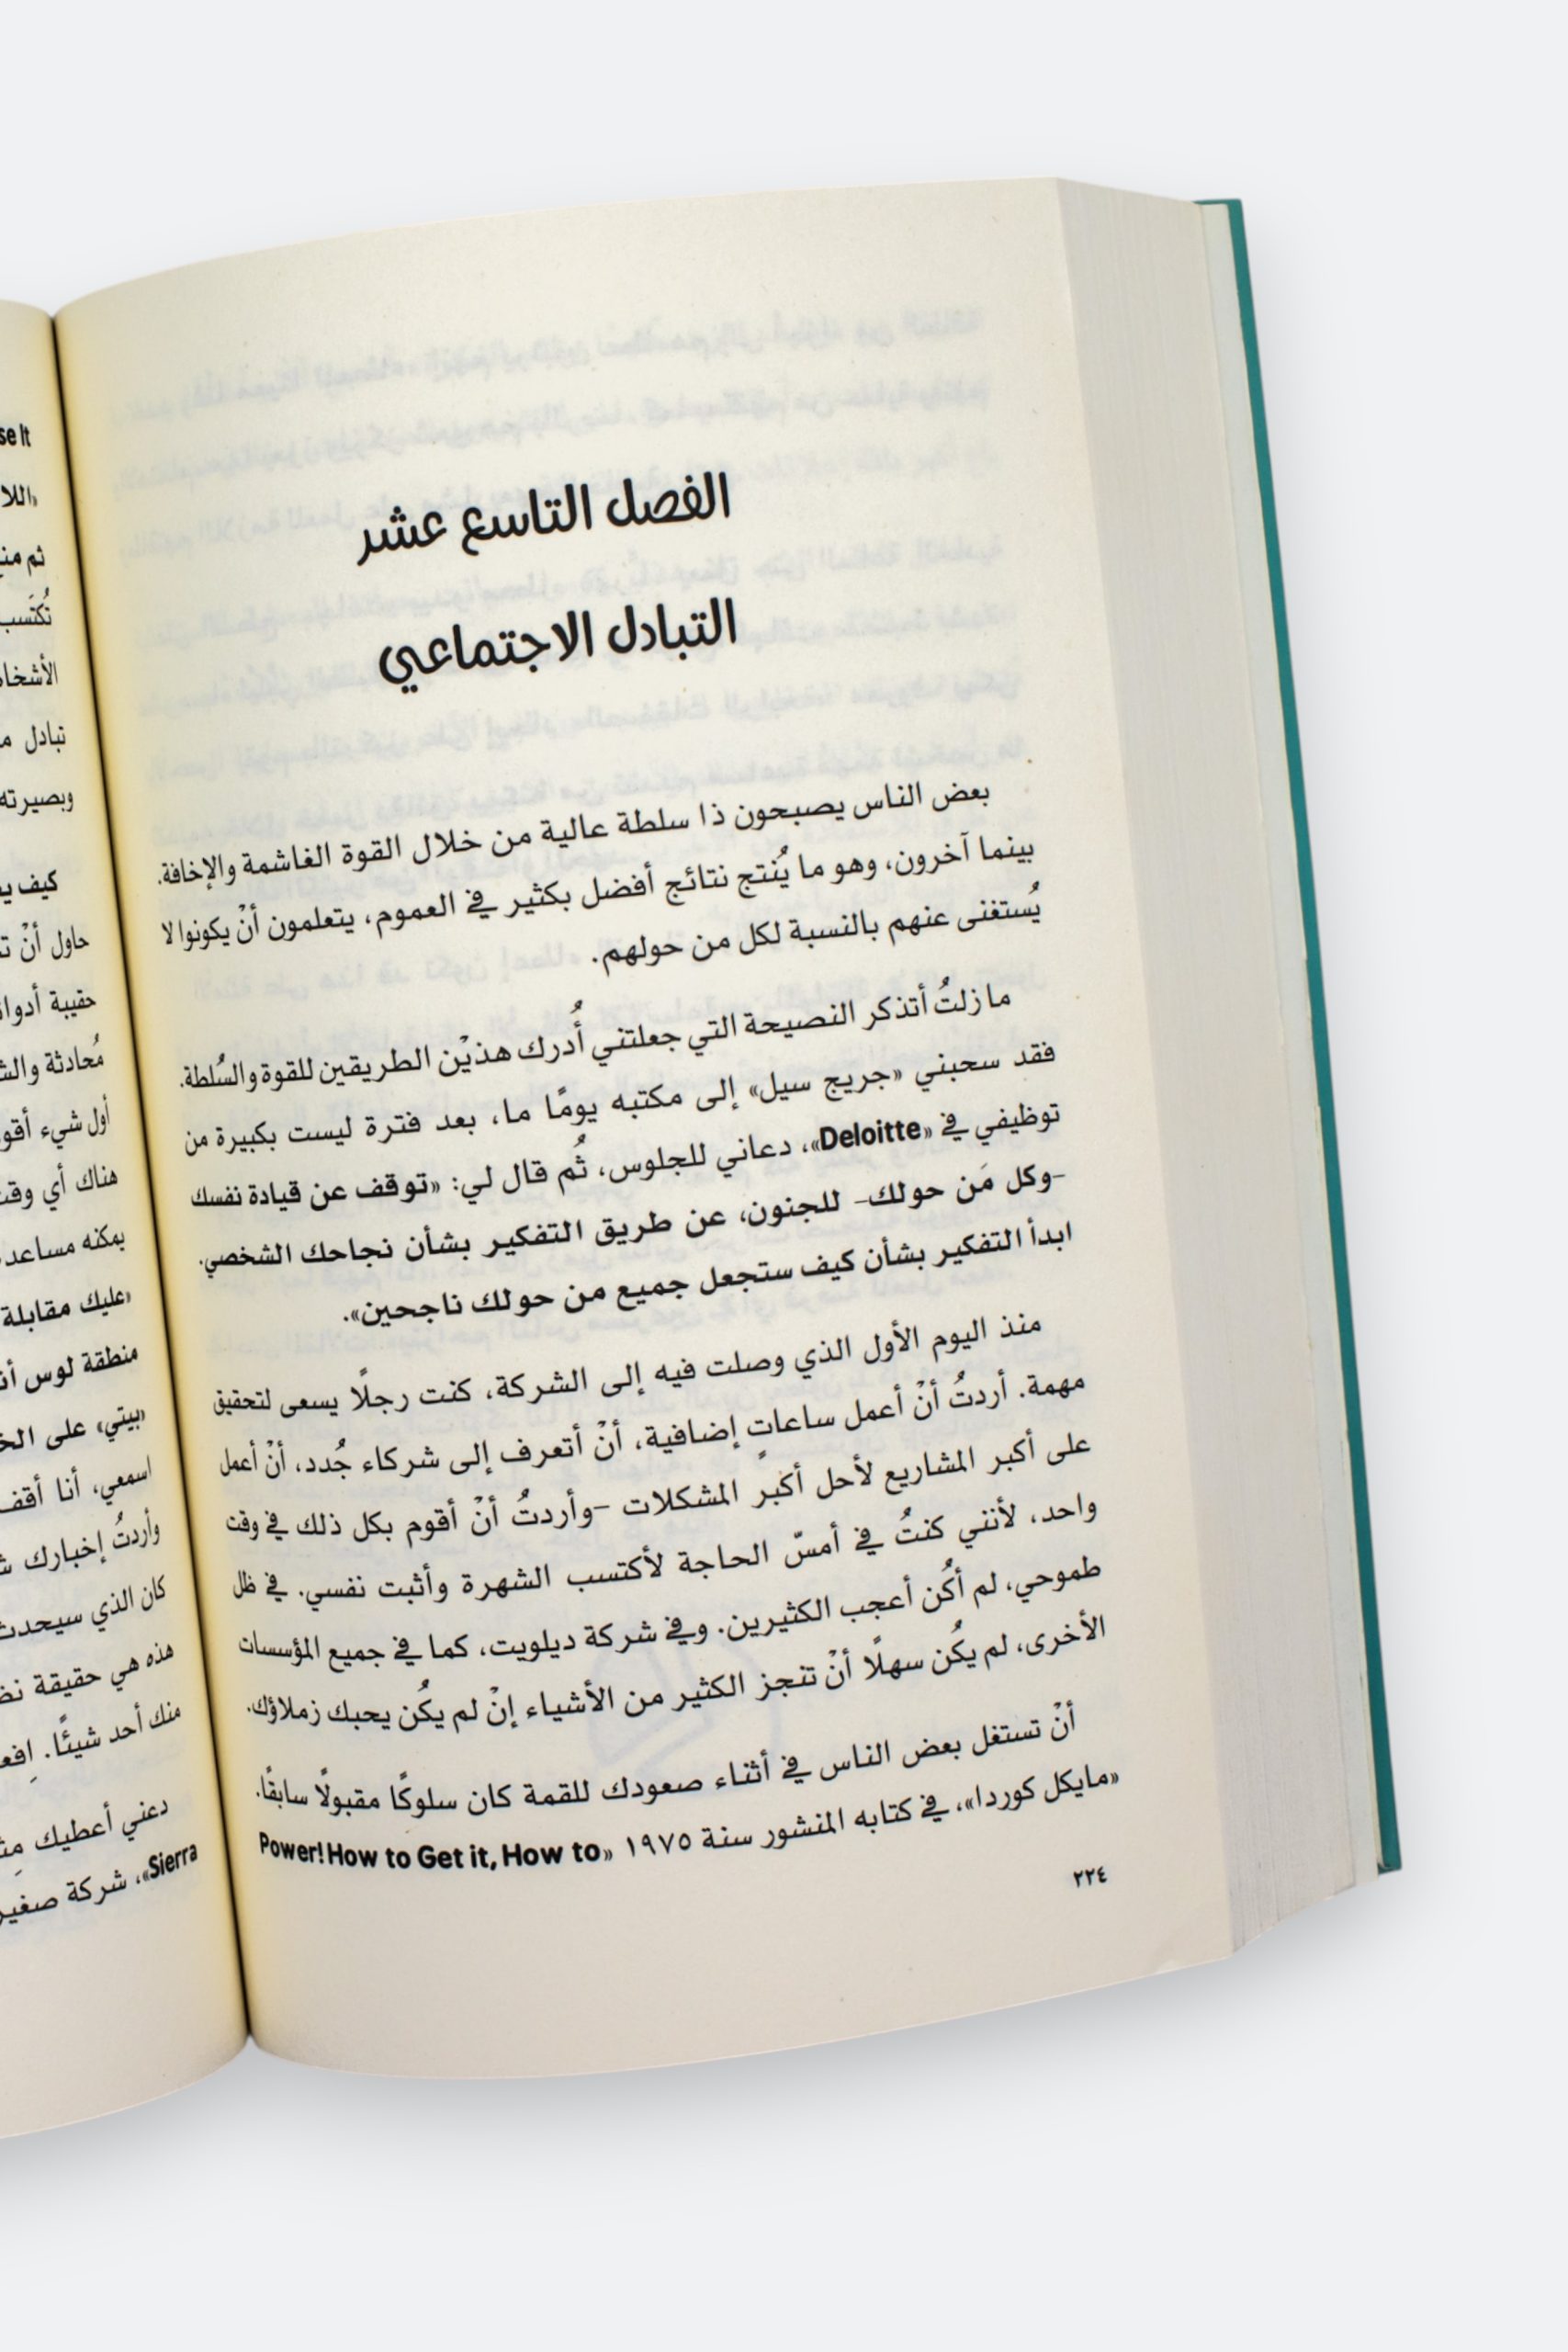 الفصل التاسع عشر
التبادل الاجتماعي
بعض الناس يصبحون ذا سلطة عالية من خلال القوة الغاشمة والإخافة.
بينما آخرون، وهو ما يُنتج نتائج أفضل بكثير في العموم، يتعلمون أنْ يكونوا لا
يُستغنى عنهم بالنسبة لكل من حولهم.
ما زلتُ أتذكر النصيحة التي جعلتني أُدرك هذيْن الطريقين للقوة والسُلطة.
فقد سحبني «جريج سيل» إلى مكتبه يومًا ما، بعد فترة ليست بكبيرة من
توظيفي في «Deloitte»، دعاني للجلوس، ثُم قال لي: «توقف عن قيادة نفسك
-وكل مَن حولك- للجنون، عن طريق التفكير بشأن نجاحك الشخصي.
ابدأ التفكير بشأن كيف ستجعل جميع من حولك ناجحين».
منذ اليوم الأول الذي وصلت فيه إلى الشركة، كنت رجلًا يسعى لتحقيق
مهمة. أردتُ أنْ أعمل ساعاتٍ إضافية، أنْ أتعرف إلى شركاء جُدد، أنْ أعمل
على أكبر المشاريع لأحل أكبر المشكلات -وأردتُ أنْ أقوم بكل ذلك في وقت
واحد، لأنني كنتُ في أمسّ الحاجة لأكتسب الشهرة وأثبت نفسي. في ظل
طموحي، لم أكُن أعجب الكثيرين. وفي شركة ديلويت، كما في جميع المؤسسات
الأخرى، لم يكُن سهلًا أنْ تنجز الكثير من الأشياء إنْ لم يكُن يحبك زملاؤك.
أنْ تستغل بعض الناس في أثناء صعودك للقمة كان سلوكًا مقبولًا سابقًا.
«مايكل كوردا»، في كتابه المنشور سنة ١٩٧٥ «Power! How to Get it, How to
٢٢٤
se It
«اللا
ثم من
تُكتَسب
تبادل م
وبصيرته
كيف ي
حاول أنْ ت
حقيبة أدوا
مُحادثة وال
أول شيء أقو
هناك أي وقت
يمكنه مساعد
«عليك مقابلة
منطقة لوس أن
«بيتي» على الخ
اسمعي، أنا أقف
وأردتُ إخبارك ش
كان الذي سيحدث
هذه هي حقيقة
منك أحد شيئًا. اِفع
دعني أعطيك مِث
Sierra»، شركة صغير